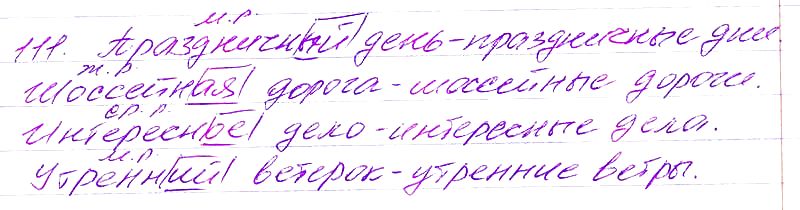 м.р.
111. Праздничный день-праздничные дни.
ж.р.
Шоссейная дорога-шоссейные дороги.
ср.р.
Интересное дело-интересные дела.
м.р.
Утренний ветерок-утренние ветры.